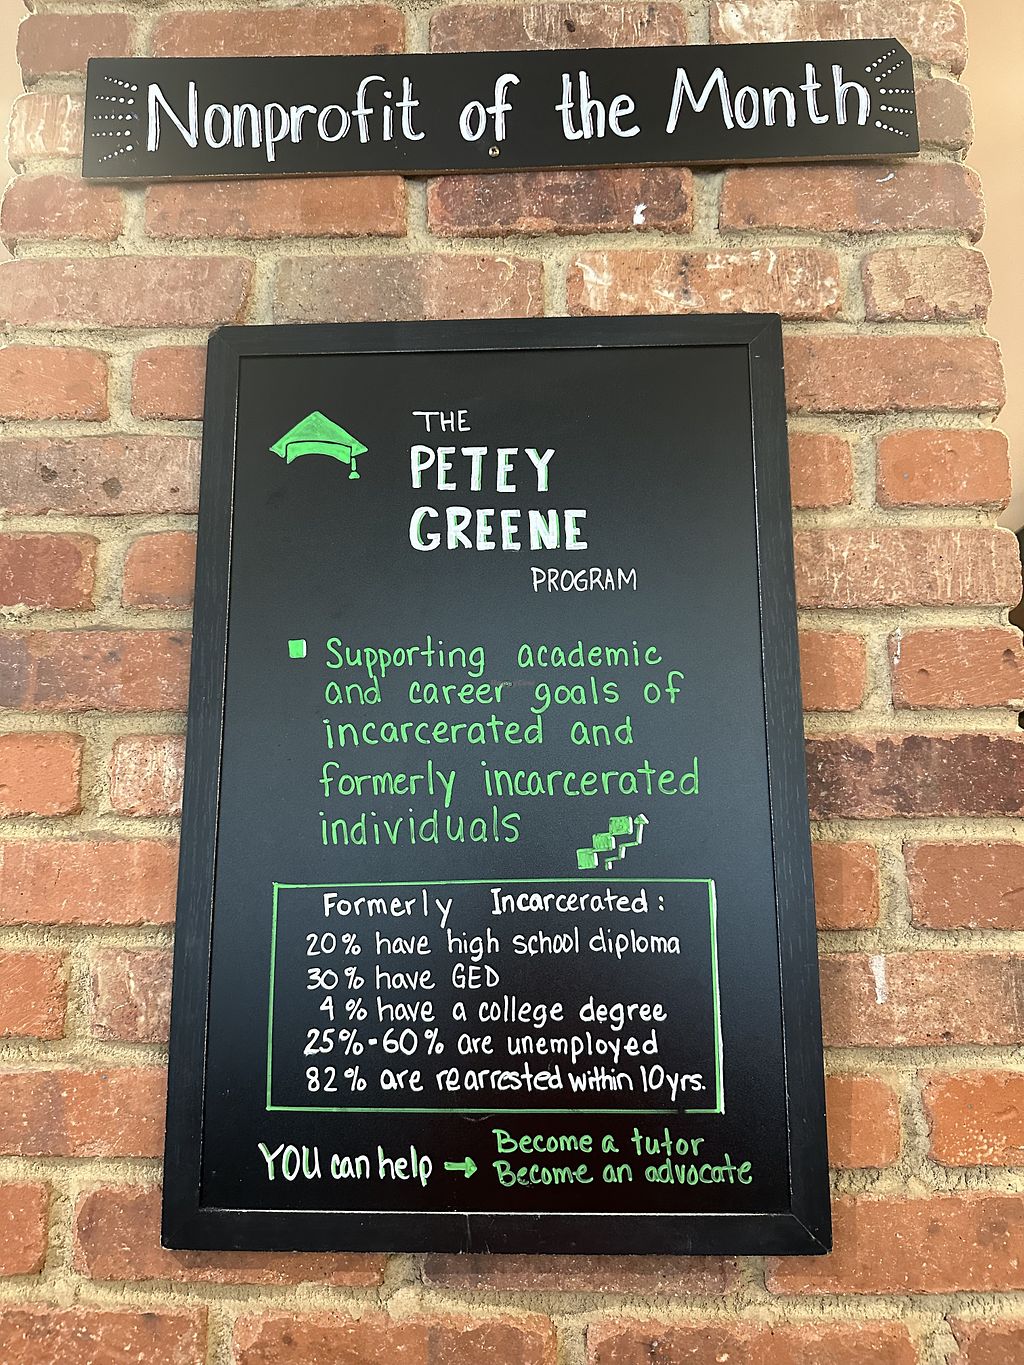 Nonprofit of the Month
THE
PETEY
GREENE
PROGRAM
Supporting academic
and career goals of
incarcerated and
formerly incarcerated
individuals
Formerly Incarcerated:
20% have high school diploma
30% have GED
4% have a college degree
25%-60% are unemployed
82% are rearrested within 10yrs.
YOU can help → Become a tutor
Become an advocate